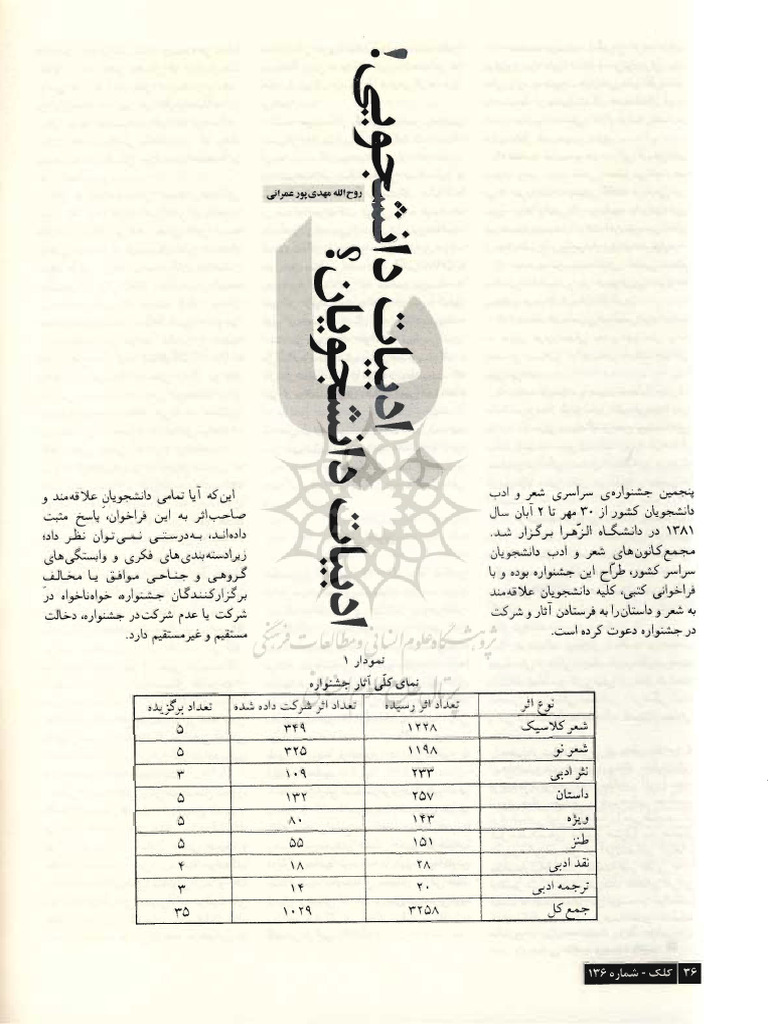 ادبیات دانشجویی!
ادبیات دانشجویان؟
روح‌الله مهدی‌پور عمرانی
پنجمین جشنواره‌ی سراسری شعر و ادب
دانشجویان کشور از ۳۰ مهر تا ۲ آبان سال
۱۳۸۱ در دانشگاه الزّهرا برگزار شد.
مجمع کانون‌های شعر و ادب دانشجویان
سراسر کشور، طرّاح این جشنواره بوده و با
فراخوانی کتبی، کلیه دانشجویان علاقه‌مند
به شعر و داستان را به فرستادن آثار و شرکت
در جشنواره دعوت کرده است.
این‌که آیا تمامی دانشجویانِ علاقه‌مند و
صاحب‌اثر به این فراخوان، پاسخ مثبت
داده‌اند، به‌درستی نمی‌توان نظر داد؛
زیرا دسته‌بندی‌های فکری و وابستگی‌های
گروهی و جناحی موافق یا مخالف
برگزارکنندگان جشنواره، خواه‌ناخواه در
شرکت یا عدم شرکت در جشنواره، دخالت
مستقیم و غیرمستقیم دارد.
پژوهشگاه علوم انسانی و مطالعات فرهنگی
نمودار ۱
نمای کلّی آثار جشنواره
نوع اثر تعداد اثر رسیده تعداد اثر شرکت داده شده تعداد برگزیده
شعر کلاسیک ۱۲۲۸ ۳۴۹ ۵
شعر نو ۱۱۹۸ ۳۲۵ ۵
نثر ادبی ۲۳۳ ۱۰۹ ۳
داستان ۲۵۷ ۱۳۲ ۵
ویژه ۱۴۳ ۸۰ ۵
طنز ۱۵۱ ۵۵ ۵
نقد ادبی ۲۸ ۱۸ ۴
ترجمه ادبی ۲۰ ۱۴ ۳
جمع کل ۳۲۵۸ ۱۰۲۹ ۳۵
۳۶ کلک - شماره ۱۳۶